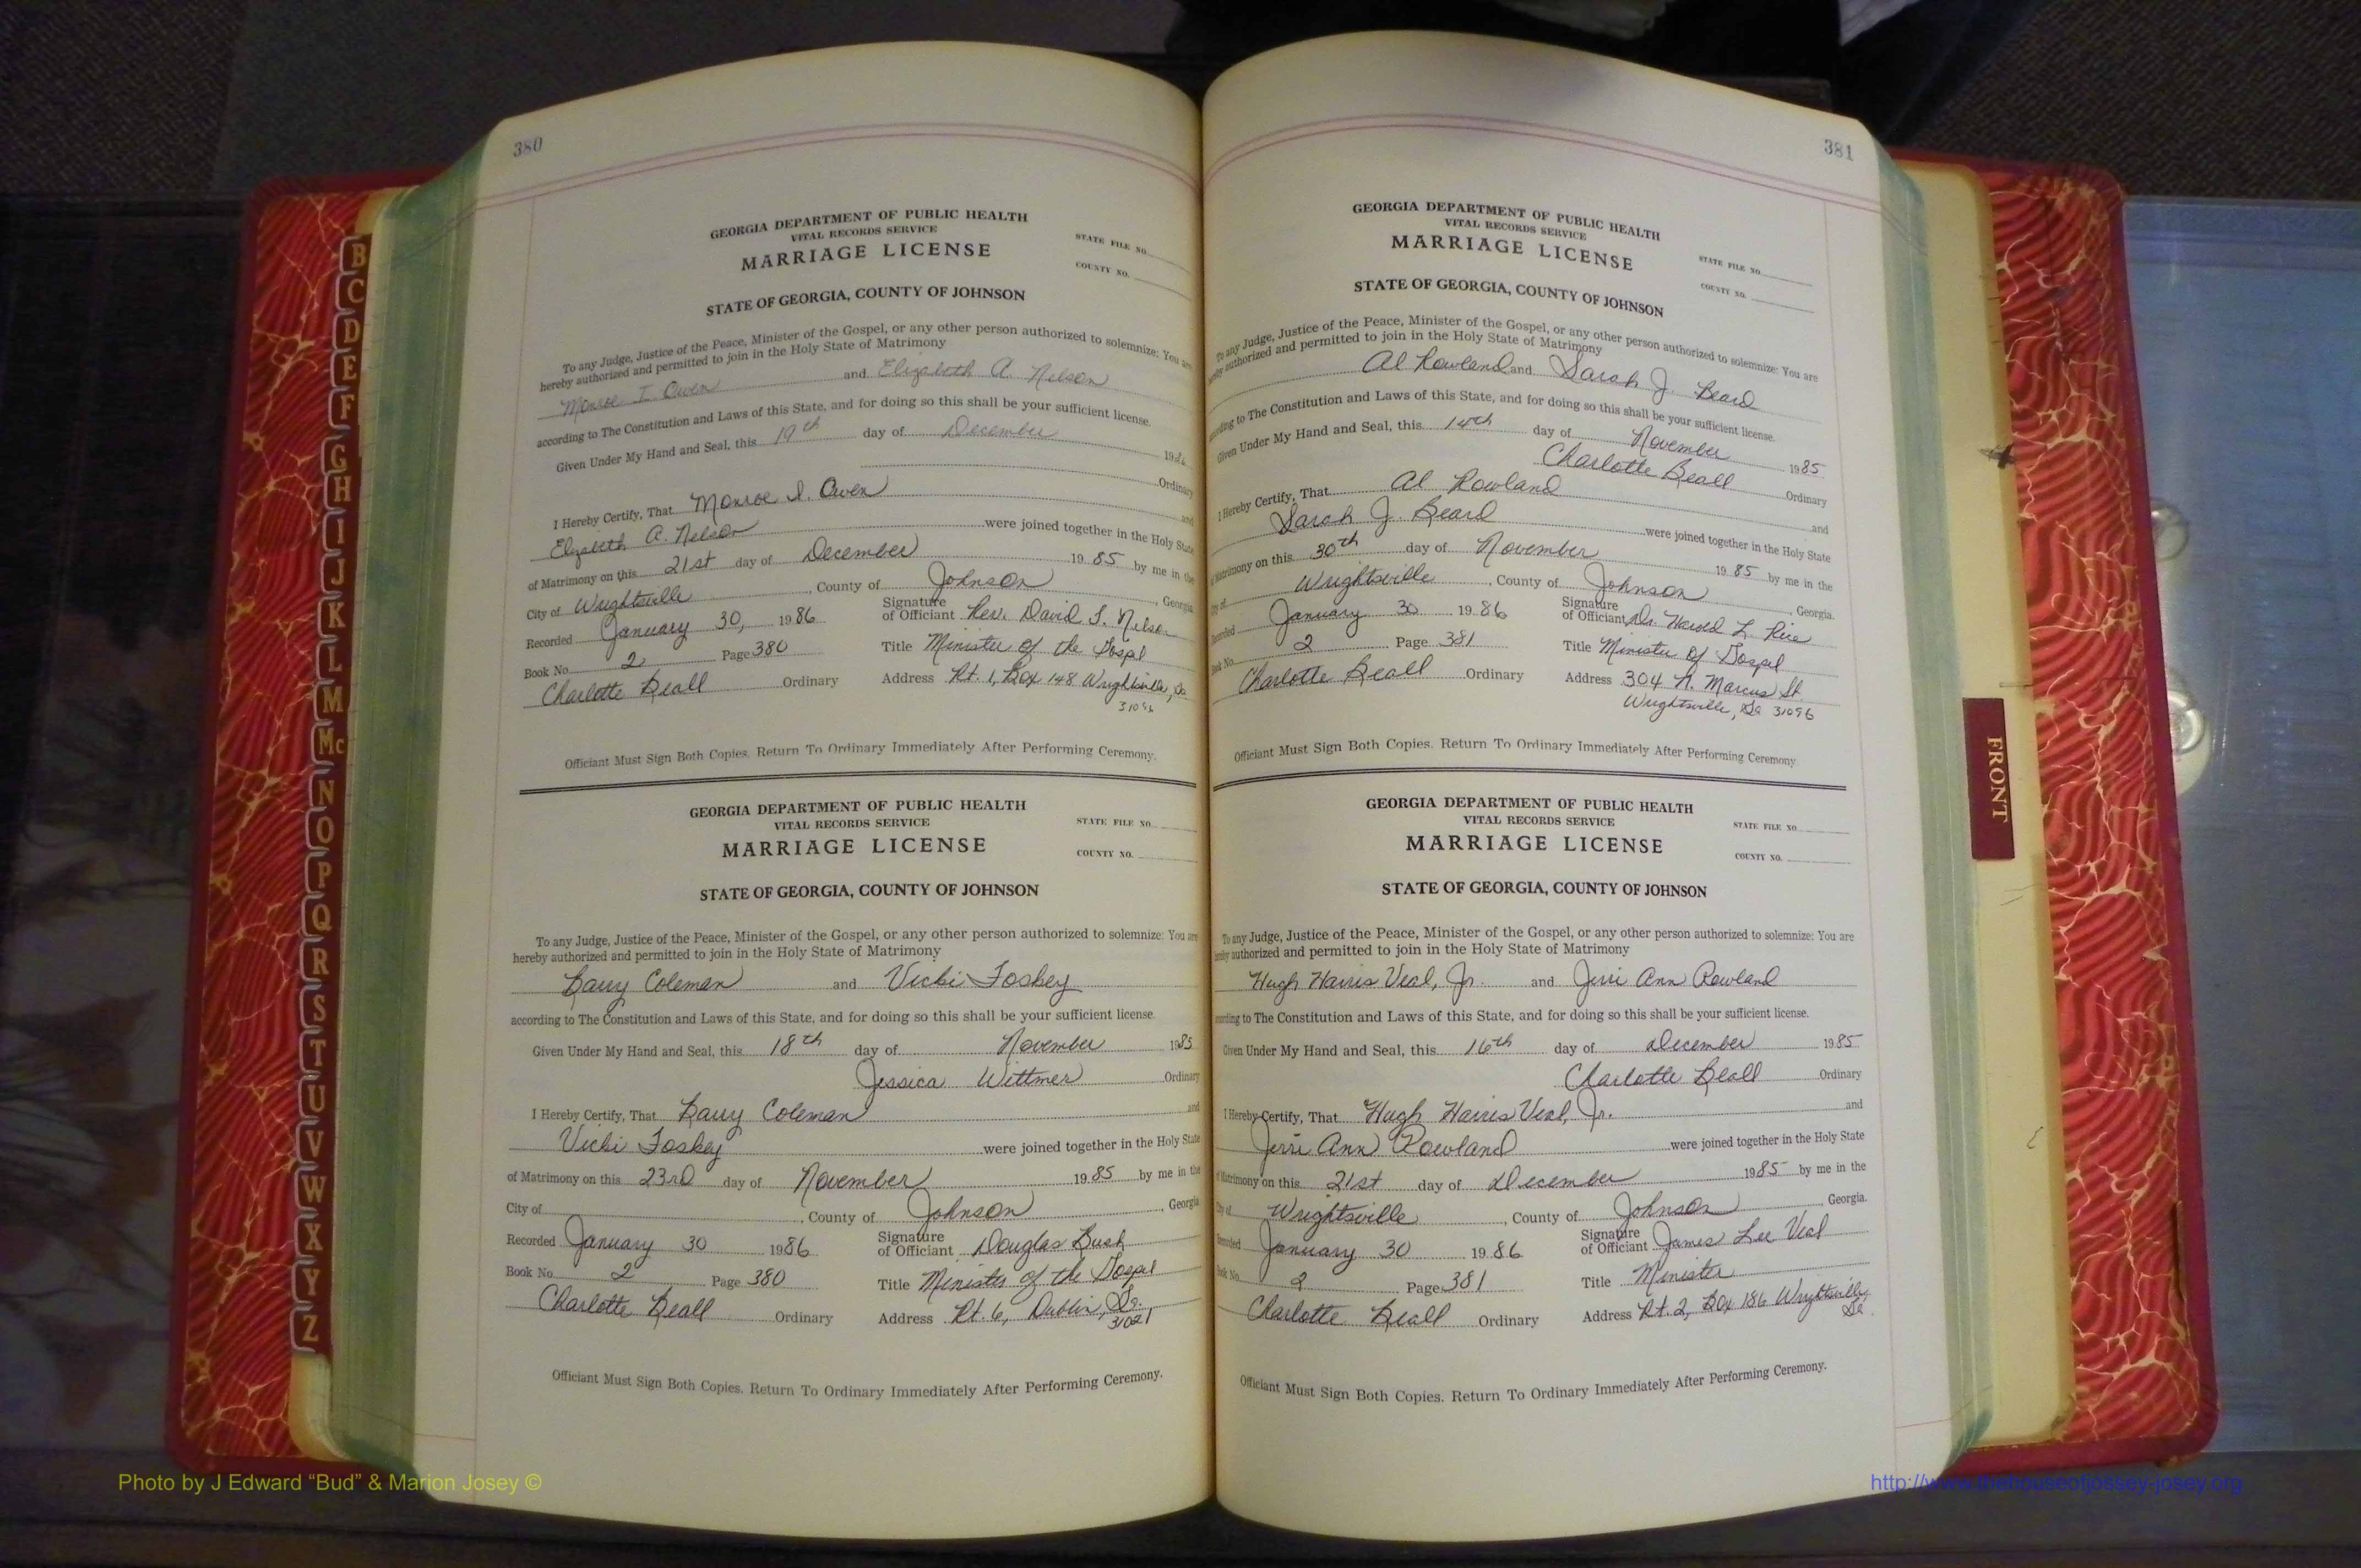 380
GEORGIA DEPARTMENT OF PUBLIC HEALTH
VITAL RECORDS SERVICE
MARRIAGE LICENSE
STATE FILE NO.
COUNTY NO.
STATE OF GEORGIA, COUNTY OF JOHNSON
To any Judge, Justice of the Peace, Minister of the Gospel, or any other person authorized to solemnize: You are
hereby authorized and permitted to join in the Holy State of Matrimony
Monroe I. Owen and Elizabeth A. Nelson
according to The Constitution and Laws of this State, and for doing so this shall be your sufficient license.
Given Under My Hand and Seal, this 19th day of December
Ordinary
I Hereby Certify, That Monroe I. Owen and
Elizabeth A. Nelson were joined together in the Holy State
of Matrimony on this 21st day of December 1985 by me in the
City of Wrightsville, County of Johnson, Georgia
Recorded January 30, 1986 Signature of Officiant Rev. David S. Nelson
Book No. 2 Page 380 Title Minister of the Gospel
Charlotte Beall Ordinary Address Rt. 1, Box 148 Wrightsville, Ga
31096
Officiant Must Sign Both Copies. Return To Ordinary Immediately After Performing Ceremony.
GEORGIA DEPARTMENT OF PUBLIC HEALTH
VITAL RECORDS SERVICE
MARRIAGE LICENSE
STATE FILE NO.
COUNTY NO.
STATE OF GEORGIA, COUNTY OF JOHNSON
To any Judge, Justice of the Peace, Minister of the Gospel, or any other person authorized to solemnize: You are
hereby authorized and permitted to join in the Holy State of Matrimony
Barry Coleman and Vicki Foskey
according to The Constitution and Laws of this State, and for doing so this shall be your sufficient license.
Given Under My Hand and Seal, this 18th day of November 1985
Jessica Wittmer Ordinary
I Hereby Certify, That Barry Coleman and
Vicki Foskey were joined together in the Holy State
of Matrimony on this 23rd day of November 1985 by me in the
City of , County of Johnson, Georgia
Recorded January 30 1986 Signature of Officiant Douglas Bush
Book No. 2 Page 380 Title Minister of the Gospel
Charlotte Beall Ordinary Address Rt. 6, Dublin, Ga.
31021
Officiant Must Sign Both Copies. Return To Ordinary Immediately After Performing Ceremony.
381
GEORGIA DEPARTMENT OF PUBLIC HEALTH
VITAL RECORDS SERVICE
MARRIAGE LICENSE
STATE FILE NO.
COUNTY NO.
STATE OF GEORGIA, COUNTY OF JOHNSON
To any Judge, Justice of the Peace, Minister of the Gospel, or any other person authorized to solemnize: You are
hereby authorized and permitted to join in the Holy State of Matrimony
Al Rowland and Sarah J. Beard
according to The Constitution and Laws of this State, and for doing so this shall be your sufficient license.
Given Under My Hand and Seal, this 14th day of November 1985
Charlotte Beall Ordinary
I Hereby Certify, That Al Rowland and
Sarah J. Beard were joined together in the Holy State
of Matrimony on this 30th day of November 1985 by me in the
City of Wrightsville, County of Johnson, Georgia.
Recorded January 30 1986 Signature of Officiant Dr. Harold L. Rice
Book No. 2 Page 381 Title Minister of Gospel
Charlotte Beall Ordinary Address 304 N. Marcus St.
Wrightsville, Ga 31096
Officiant Must Sign Both Copies. Return To Ordinary Immediately After Performing Ceremony
GEORGIA DEPARTMENT OF PUBLIC HEALTH
VITAL RECORDS SERVICE
MARRIAGE LICENSE
STATE FILE NO.
COUNTY NO.
STATE OF GEORGIA, COUNTY OF JOHNSON
To any Judge, Justice of the Peace, Minister of the Gospel, or any other person authorized to solemnize: You are
hereby authorized and permitted to join in the Holy State of Matrimony
Hugh Harris Veal, Jr. and Jerri Ann Rowland
according to The Constitution and Laws of this State, and for doing so this shall be your sufficient license.
Given Under My Hand and Seal, this 16th day of December 1985
Charlotte Beall Ordinary
I Hereby Certify, That Hugh Harris Veal, Jr. and
Jerri Ann Rowland were joined together in the Holy State
of Matrimony on this 21st day of December 1985 by me in the
City of Wrightsville, County of Johnson, Georgia.
Recorded January 30 1986 Signature of Officiant James Lee Veal
Book No. 2 Page 381 Title Minister
Charlotte Beall Ordinary Address Rt. 2, Box 186 Wrightsville,
Ga.
Officiant Must Sign Both Copies. Return To Ordinary Immediately After Performing Ceremony.
B
C
D
E
F
G
H
I
J
K
L
M
Mc
N
O
P
Q
R
S
T
U
V
W
X
Y
Z
FRONT
Photo by J Edward “Bud” & Marion Josey ©
http://www.thehouseofjossey-josey.org